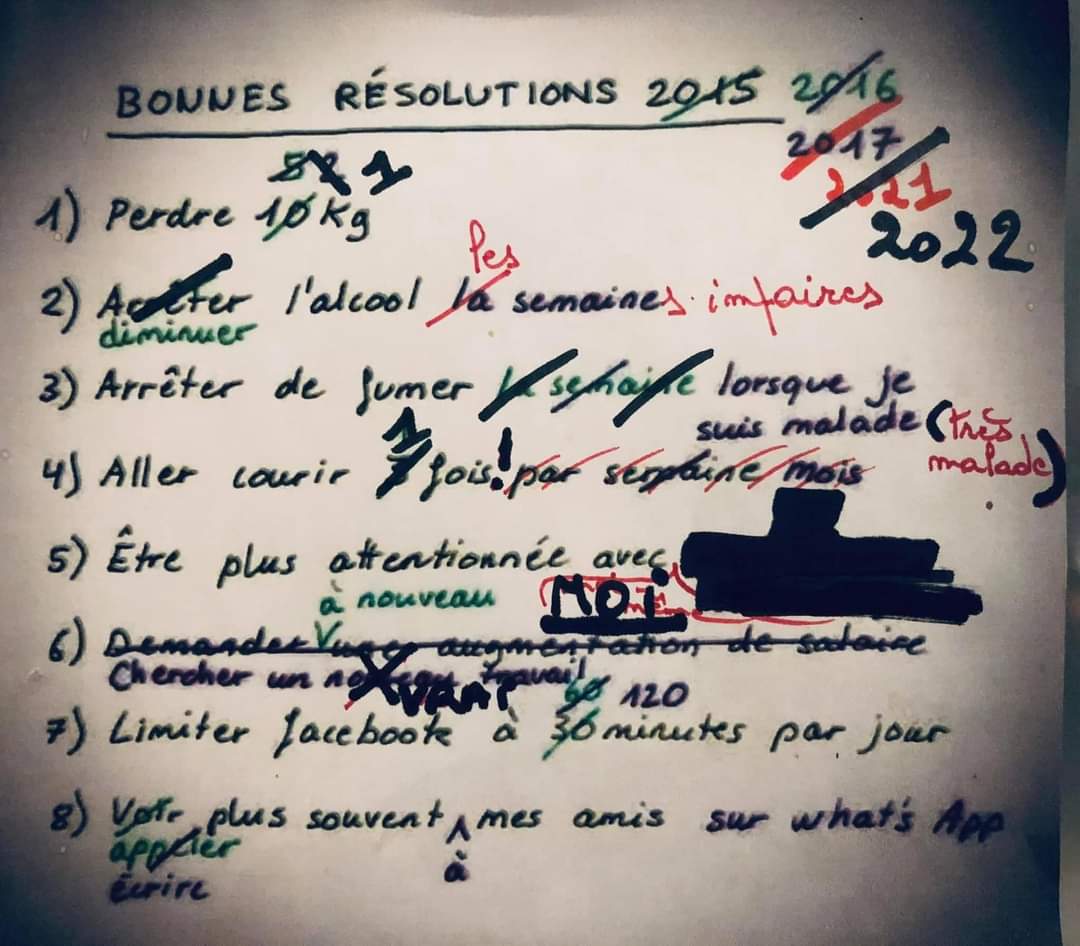 BONNES RÉSOLUTIONS 2015 2016
2017
2021
2022
5 2 1
1) Perdre 10 Kg
les
2) Arrêter l'alcool la semaines impaires
diminuer
3) Arrêter de fumer la semaine lorsque je
suis malade (très
malade)
1
4) Aller courir fois! par semaine mois
5) Être plus attentionnée avec
MOi
à nouveau
6) Demander V une augmentation de salaire
Chercher un nouveau travail
VRAI
60 120
7) Limiter facebook à 30 minutes par jour
8) Voir plus souvent ^ mes amis sur what's App
appeler à
écrire